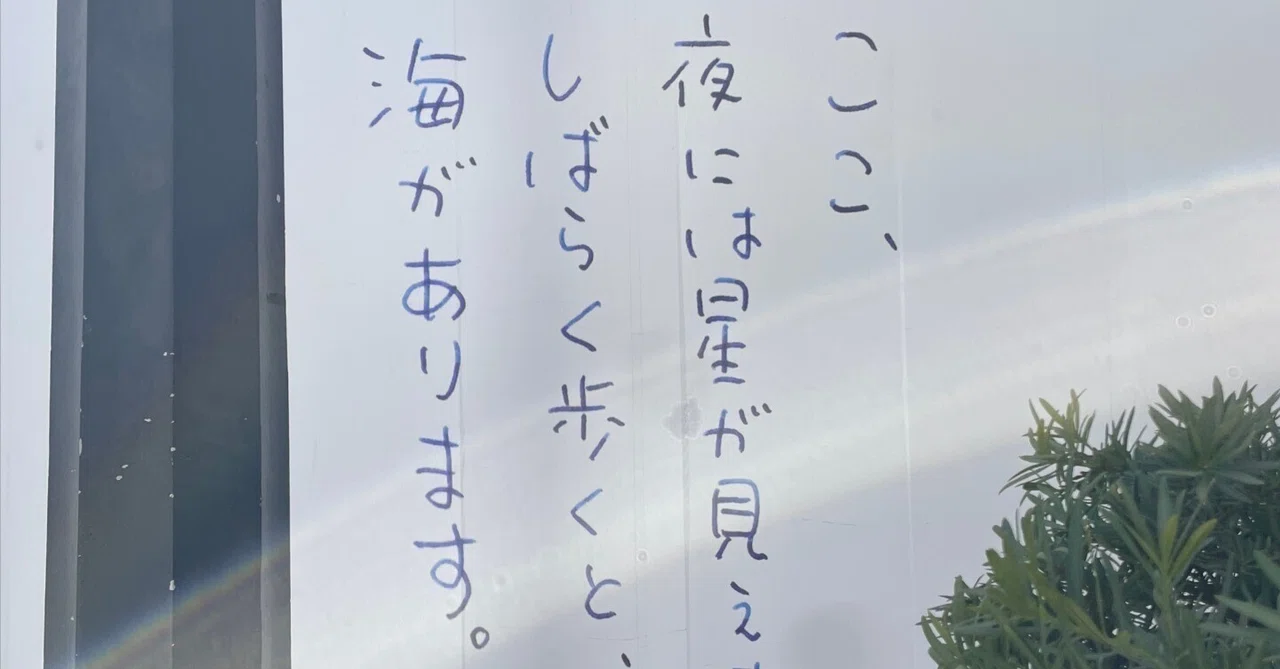 ここ、
夜には星が見え
しばらく歩くと、
海があります。